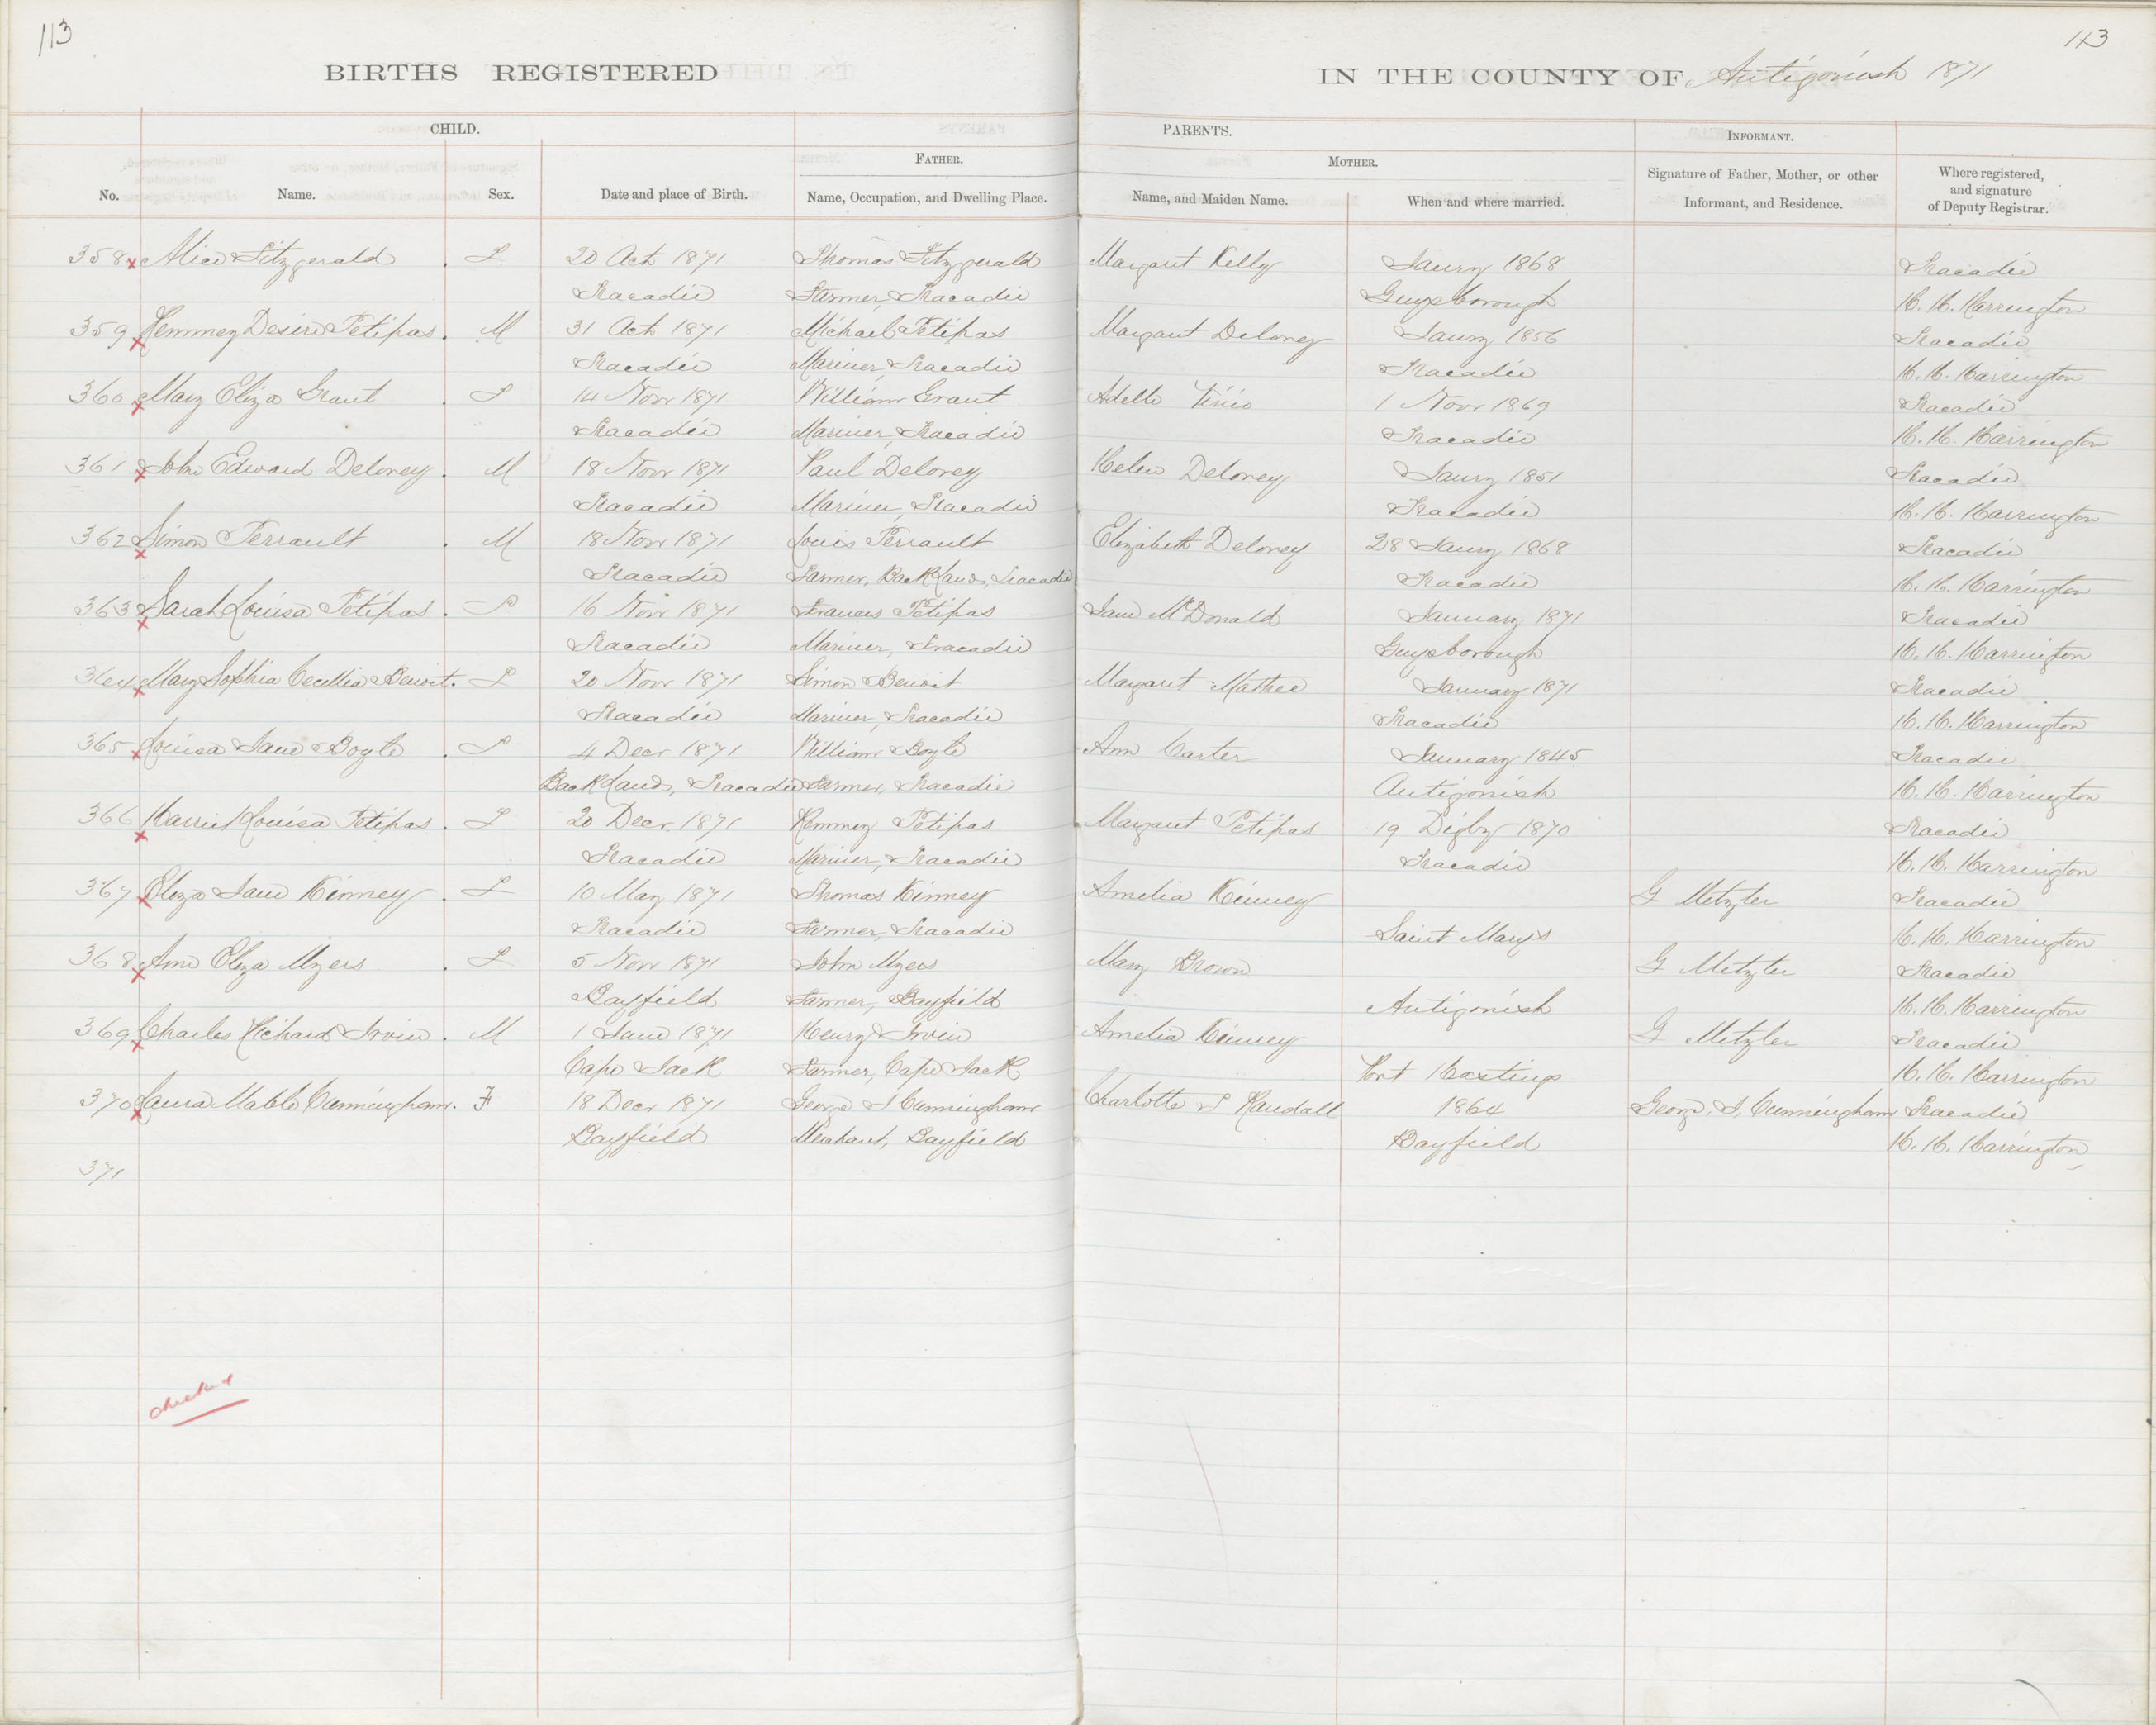 113
113
BIRTHS REGISTERED IN THE COUNTY OF Antigonish 1871
CHILD. PARENTS. INFORMANT.
FATHER. MOTHER.
No. Name. Sex. Date and place of Birth. Name, Occupation, and Dwelling Place. Name, and Maiden Name. When and where married. Signature of Father, Mother, or other Informant, and Residence. Where registered, and signature of Deputy Registrar.
358 Alice Fitzgerald . F 20 Oct 1871 Thomas Fitzgerald Margaret Kelly Jaury 1868 Tracadie
Tracadie Farmer, Tracadie Guysborough H. H. Harrington
359 Hemmey Desire Petipas . M 31 Oct 1871 Michael Petipas Margaret Deloney Jaury 1856 Tracadie
Tracadie Mariner, Tracadie Tracadie H. H. Harrington
360 Mary Eliza Grant . F 14 Novr 1871 William Grant Adelle 1 Novr 1869 Tracadie
Tracadie Mariner, Tracadie Tracadie H. H. Harrington
361 John Edward Deloney . M 18 Novr 1871 Paul Deloney Helen Deloney Jaury 1851 Tracadie
Tracadie Mariner, Tracadie Tracadie H. H. Harrington
362 Simon Perrault . M 18 Novr 1871 Louis Perrault Elizabeth Deloney 28 Jaury 1868 Tracadie
Tracadie Farmer, Back Land, Tracadie Tracadie H. H. Harrington
363 Sarah Louisa Petipas . F 16 Novr 1871 Frances Petipas Jane McDonald January 1871 Tracadie
Tracadie Mariner, Tracadie Guysborough H. H. Harrington
364 Mary Sophia Cecillia Benoit . F 20 Novr 1871 Simon Benoit Margaret Mathee January 1871 Tracadie
Tracadie Mariner, Tracadie Tracadie H. H. Harrington
365 Louisa Jane Bogle . F 4 Decr 1871 William Bogle Ann Carter January 1845 Tracadie
Back Land, Tracadie Farmer, Tracadie Antigonish H. H. Harrington
366 Harriet Louisa Petipas . F 20 Decr 1871 Hemmey Petipas Margaret Petipas 19 Digby 1870 Tracadie
Tracadie Mariner, Tracadie Tracadie H. H. Harrington
367 Eliza Jane Kinney . F 10 May 1871 Thomas Kinney Amelia Kinney G Metzler Tracadie
Tracadie Farmer, Tracadie Saint Marys H. H. Harrington
368 Ann Eliza Myers . F 5 Novr 1871 John Myers Mary Brown G Metzler Tracadie
Bayfield Farmer, Bayfield Antigonish H. H. Harrington
369 Charles Richard Irvin . M 1 June 1871 Henry Irvin Amelia Kinney G Metzler Tracadie
Cape Jack Farmer, Cape Jack Port Hastings H. H. Harrington
370 Laura Mable Cunningham . F 18 Decr 1871 George S Cunningham Charlotte S Randall 1864 George, S, Cunningham Tracadie
Bayfield Merchant, Bayfield Bayfield H. H. Harrington
371
checked